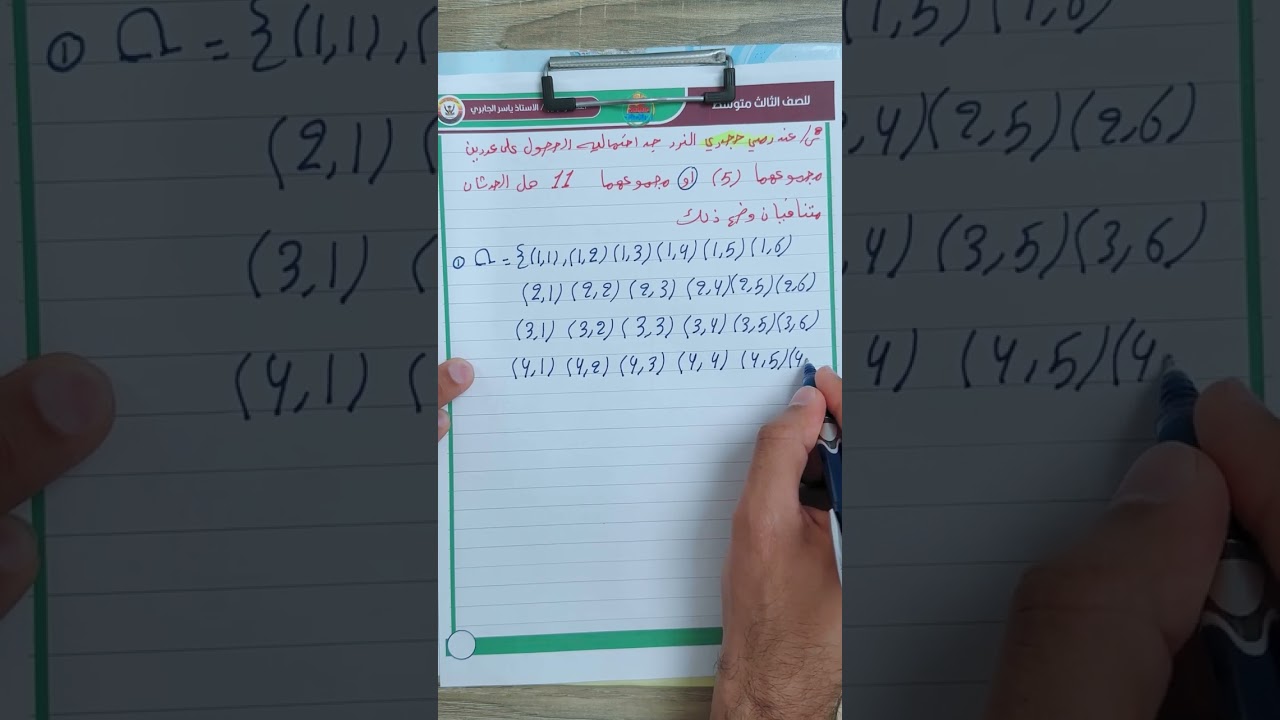 للصف الثالث متوسط
الاستاذ ياسر الجابري
س/ عند رمي حجري النرد جد احتمالية الحصول على عددين
مجموعهما (5) او مجموعهما 11 هل الحدثان
متنافيان وضح ذلك
① Ω = {(1,1),(1,2)(1,3)(1,4)(1,5)(1,6)
(2,1) (2,2) (2,3) (2,4)(2,5)(2,6)
(3,1) (3,2) (3,3) (3,4) (3,5)(3,6)
(4,1) (4,2) (4,3) (4,4) (4,5)(4,